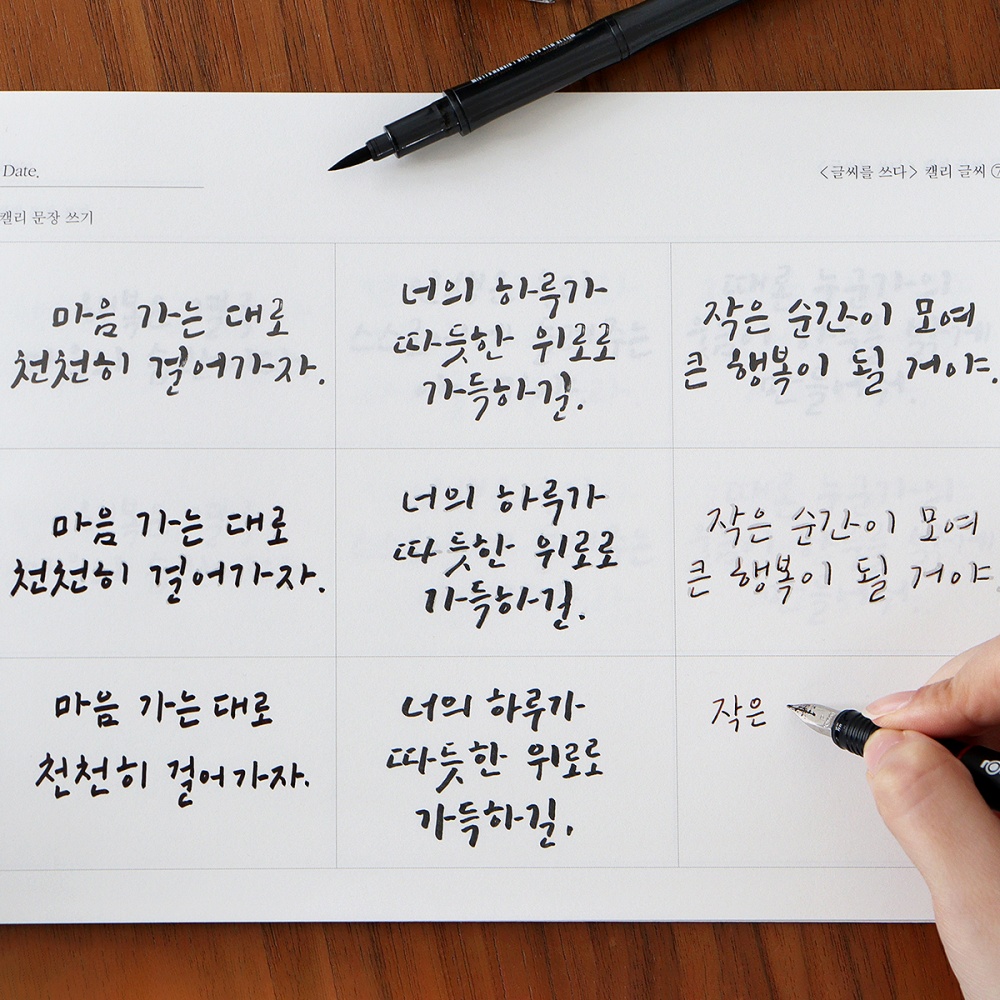 Date.
<글씨를 쓰다> 캘리 글씨 ⑦
캘리 문장 쓰기
마음 가는 대로
천천히 걸어가자.
너의 하루가
따듯한 위로로
가득하길.
작은 순간이 모여
큰 행복이 될 거야.
마음 가는 대로
천천히 걸어가자.
너의 하루가
따듯한 위로로
가득하길.
작은 순간이 모여
큰 행복이 될 거야.
마음 가는 대로
천천히 걸어가자.
너의 하루가
따듯한 위로로
가득하길.
작은